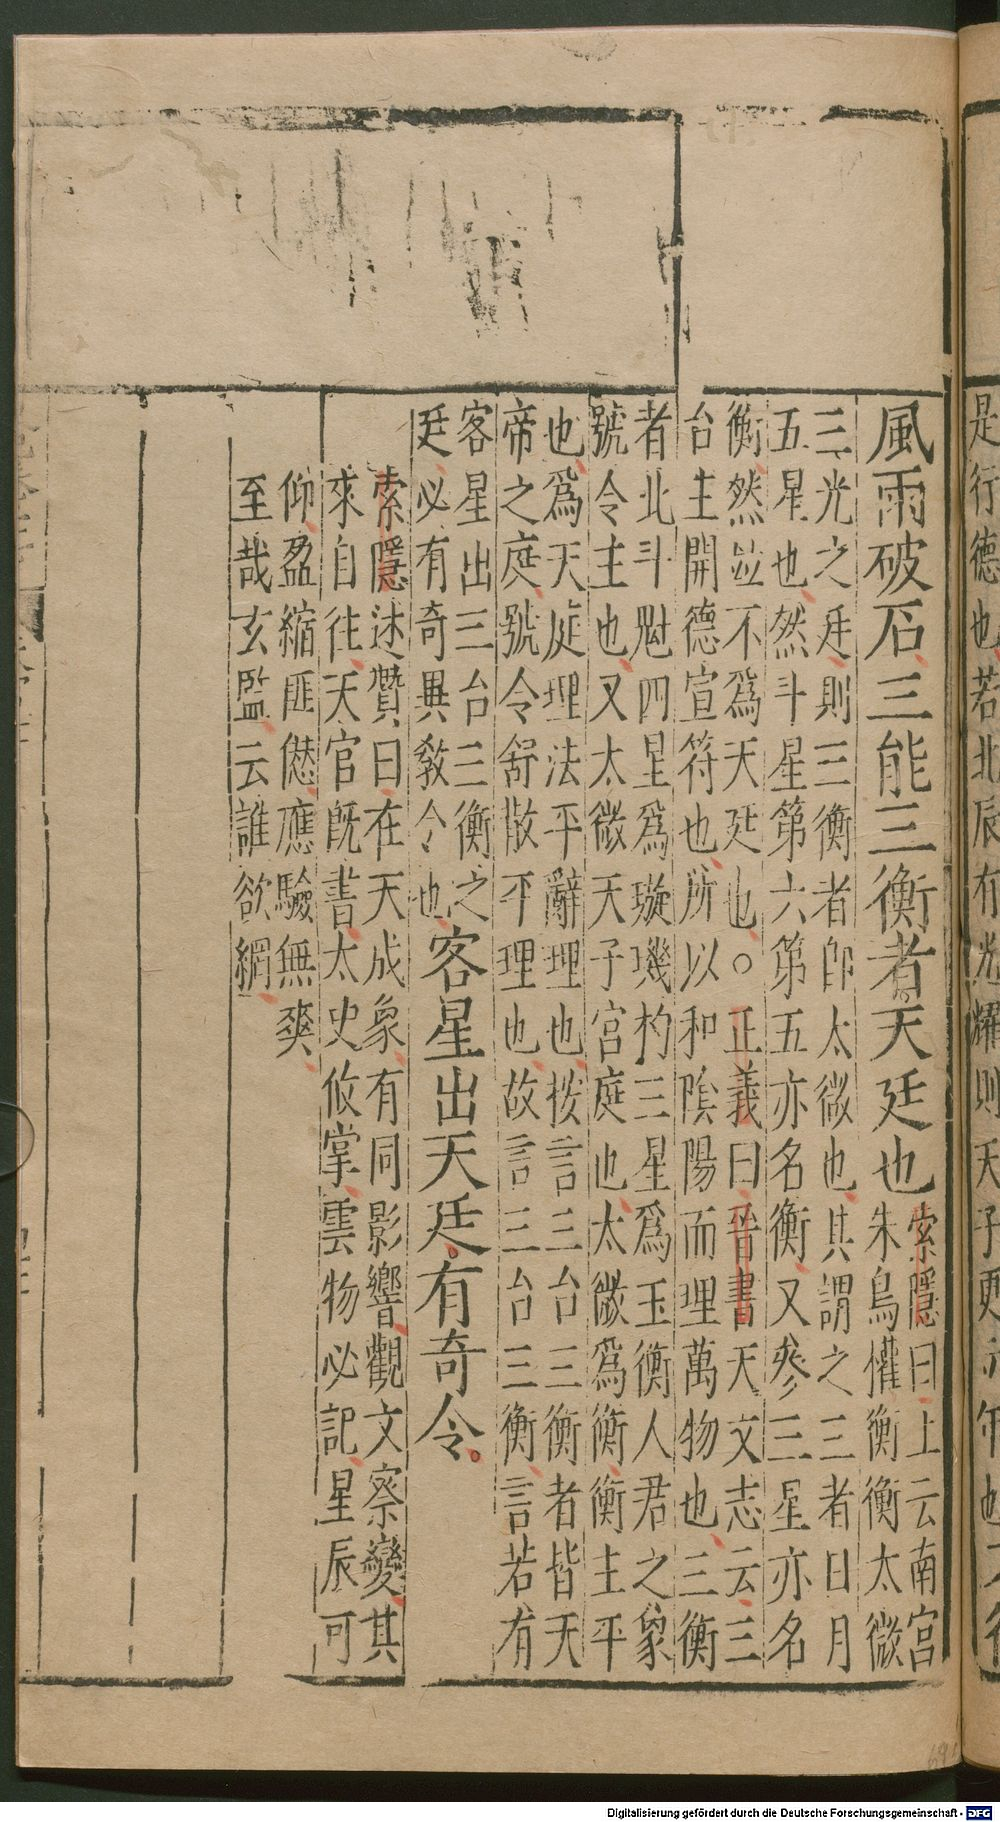 是行德也若北辰有光耀則天子更
風雨破石三能三衡者天廷也索隱曰上云南宫
朱鳥權衡衡太微
三光之廷則三衡者即太微也其謂之三者日月
五星也然斗星第六第五亦名衡又參三星亦名
衡然並不爲天廷也○正義曰晉書天文志云三
台主開德宣符也所以和陰陽而理萬物也三衡
者北斗魁四星爲璇璣杓三星爲玉衡人君之象
號令主也又太微天子宫庭也太微爲衡衡主平
也爲天庭理法平辭理也按言三台三衡者皆天
帝之庭號令舒散平理也故言三台三衡言若有
客星出三台三衡之
廷必有奇異教令也客星出天廷有奇令
索隱述贊曰在天成象有同影響觀文察變其
來自往天官既書太史攸掌雲物必記星辰可
仰盈縮匪僁應驗無爽
至哉玄監云誰欲網
Digitalisierung gefördert durch die Deutsche Forschungsgemeinschaft - DFG